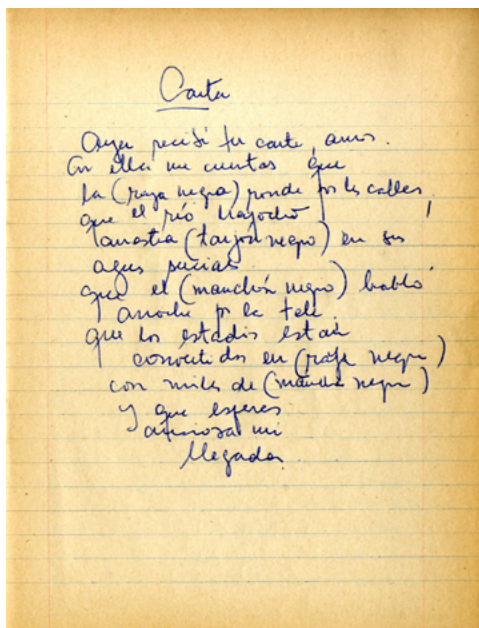 Carta
Ayer recibí tu carta, amor.
En ella me cuentas que
la (raya negra) ronda por las calles,
que el río Mapocho
arrastra (tarjón negro) en sus
aguas sucias
que el (manchón negro) habló
anoche por la tele
que los estadios están
convertidos en (raya negra)
con miles de (mancha negra)
y que esperas
ansiosa mi
llegada.